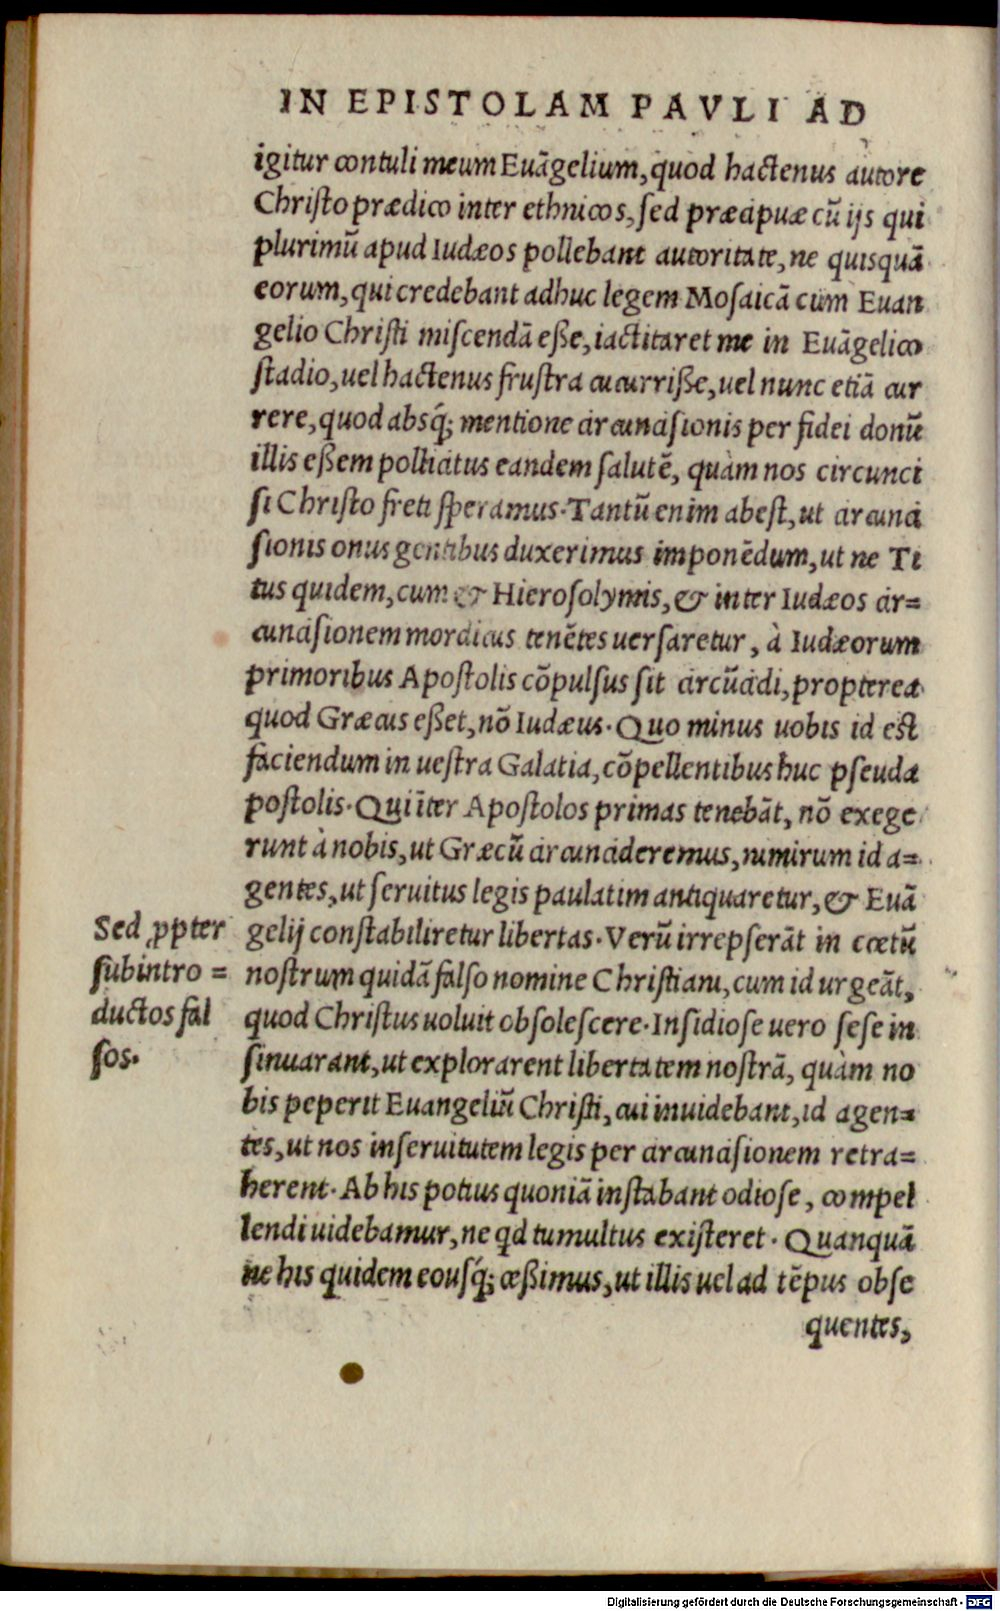 IN EPISTOLAM PAVLI AD
igitur contuli meum Euãgelium, quod hactenus autore
Christo prædico inter ethnicos, sed præcipuæ cũ ijs qui
plurimũ apud Iudæos pollebant autoritate, ne quisquã
eorum, qui credebant adhuc legem Mosaicã cum Euan
gelio Christi miscendã eße, iactitaret me in Euãgelico
stadio, uel hactenus frustra cucurriße, uel nunc etiã cur
rere, quod absq́; mentione circuncisionis per fidei donũ
illis eßem pollicitus eandem salutẽ, quàm nos circunci
si Christo freti speramus. Tantũ enim abest, ut circunci
sionis onus gentibus duxerimus imponẽdum, ut ne Ti
tus quidem, cum & Hierosolymis, & inter Iudæos cir=
cuncisionem mordicus tenẽtes uersaretur, à Iudæorum
primoribus Apostolis cõpulsus sit circũcidi, propterea
quod Græcus eßet, nõ Iudæus. Quo minus uobis id est
faciendum in uestra Galatia, cõpellentibus huc pseuda
postolis. Qui ĩter Apostolos primas tenebãt, nõ exege
runt à nobis, ut Græcũ circuncideremus, nimirum id a=
gentes, ut seruitus legis paulatim antiquaretur, & Euã
gelij constabiliretur libertas. Verũ irrepserãt in cœtũ
nostrum quidã falso nomine Christiani, cum id urgeãt,
quod Christus uoluit obsolescere. Insidiose uero sese in
sinuarant, ut explorarent libertatem nostrã, quàm no
bis peperit Euangeliũ Christi, cui inuidebant, id agen=
tes, ut nos in seruitutem legis per circuncisionem retra=
herent. Ab his potius quoniã instabant odiose, compel
lendi uidebamur, ne qd tumultus existeret. Quanquã
ne his quidem eousq́; ceßimus, ut illis uel ad tẽpus obse
quentes,
Sed ꝓpter
subintro=
ductos fal
sos.
Digitalisierung gefördert durch die Deutsche Forschungsgemeinschaft - DFG